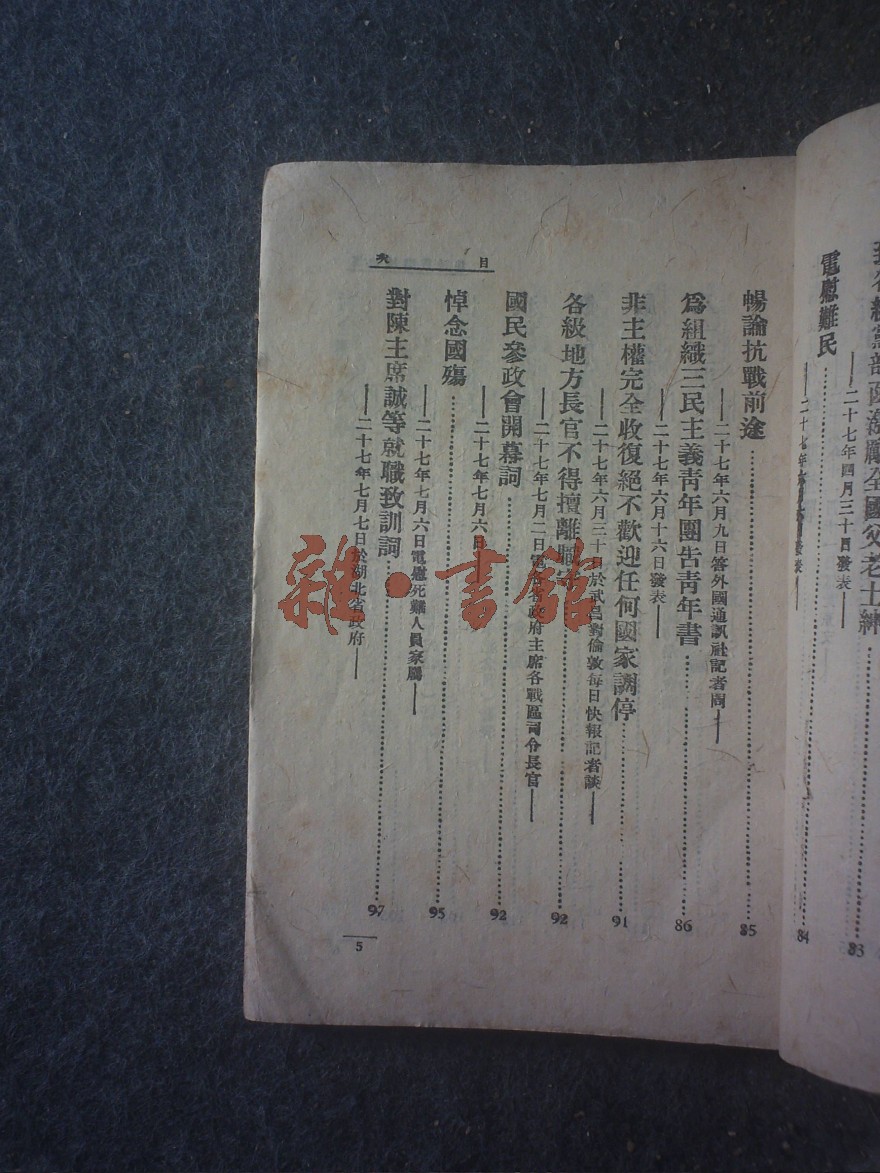 全國父老士紳
83
——二十七年四月三十日發表——
電慰難民
84
目次
暢論抗戰前途
85
——二十七年六月九日答外國通訊社記者問——
為組織三民主義青年團告青年書
86
——二十七年六月十六日發表——
非主權完全收復絕不歡迎任何國家調停
91
——二十七年六月三十 於武昌對倫敦每日快報記者談——
各級地方長官不得擅離職守
92
——二十七年七月二日電 各省政府主席各戰區司令長官——
國民參政會開幕詞
92
——二十七年七月六日
悼念國殤
95
——二十七年七月六日電慰死難人員家屬——
對陳主席誠等就職致訓詞
97
——二十七年七月七日於湖北省政府——
5
雜·書館